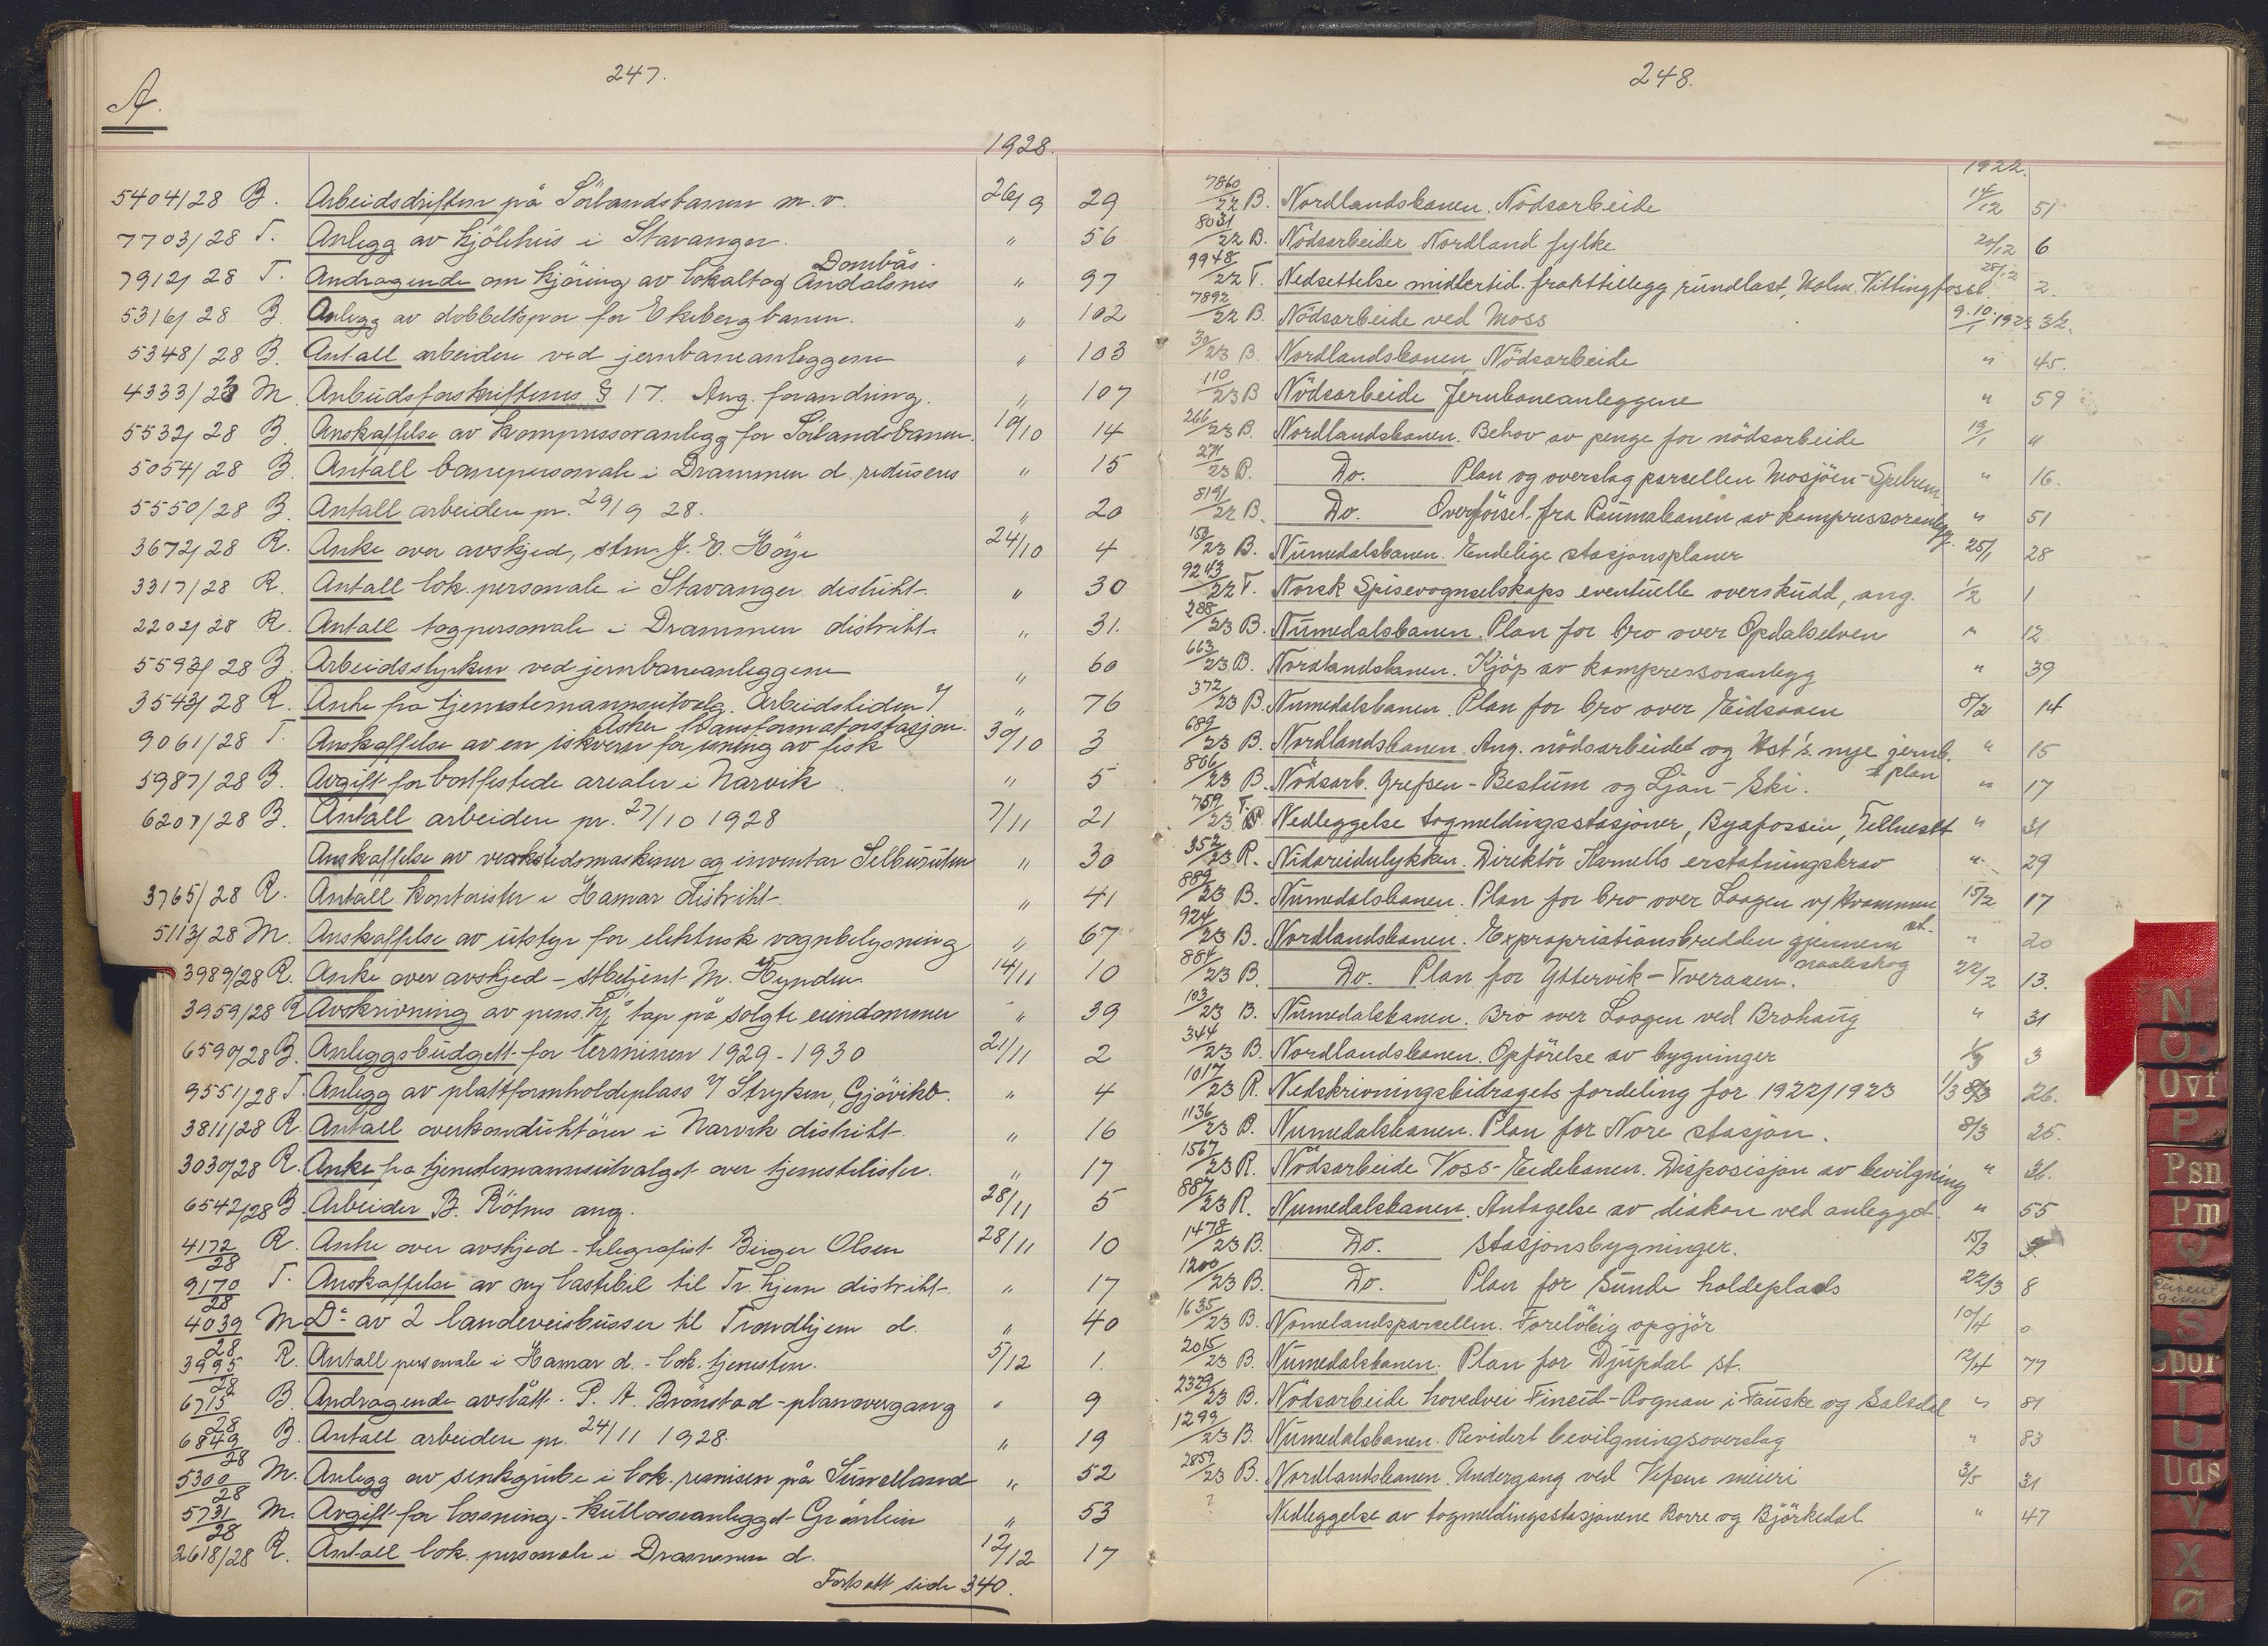 247.
A.
1928.
5404/28 B. Arbeidsdriften på Sörlandsbanen m. v. 26/9 29
7703/28 T. Anlegg av kjölehus i Stavanger. " 56
Dombås.
7912/28 T. Andragende om kjöring av lokaltog Åndalsnes " 97
5316/28 B. Anlegg av dobbeltspor for Ekebergbanen. " 102
5348/28 B. Antall arbeidere ved jernbaneanleggene " 103
4333/28 M. Anbudsforskriftenes § 17. Ang. forandring. " 107
5532/28 B. Anskaffelse av kompressoranlegg for Sörlandsbanen. 10/10 14
5054/28 B. Antall banepersonale i Drammen d. reduseres " 15
5550/28 B. Antall arbeidere pr. 29/9 28. " 20
3672/28 R. Anke over avskjed, stm. J. E. Höye 24/10 4
3317/28 R. Antall lok. personale i Stavanger distrikt " 30
2202/28 R. Antall togpersonale i Drammen distrikt " 31.
5593/28 B. Arbeidsstyrken ved jernbaneanleggene " 60
3543/28 R. Anke fra tjenestemannsutvalg. Arbeidstiden v/ " 76
Asker transformatorstasjon.
9061/28 T. Anskaffelse av en iskvern for ising av fisk 30/10 3
5987/28 B. Avgift for bortfestede arealer i Narvik " 5
6207/28 B. Antall arbeidere pr. 27/10 1928 7/11 21
Anskaffelse av verkstedsmaskiner og inventar Selburuten " 30
3765/28 R. Antall kontorister i Hamar distrikt. " 41
5113/28 M. Anskaffelse av utstyr for elektrisk vognbelysning " 67
3989/28 R. Anke over avskjed - stbetjent M. Hynden 14/11 10
3959/28 R. Avskrivning av pens. kj tap på solgte eiendommer " 39
6590/28 B. Anleggsbudgett for terminen 1929-1930 21/11 2
9551/28 T. Anlegg av plattformholdeplass v/ Stryken, Gjövikb. " 4
3811/28 R. Antall overkonduktörer i Narvik distrikt. " 16
3030/28 R. Anke fra tjenestemannsutvalget over tjenestelister. " 17
6542/28 B. Arbeider B. Röhms ang. 28/11 5
4172/28 R. Anke over avskjed - telegrafist Birger Olsen 28/11 10
9170/28 T. Anskaffelse av ny lastebil til Tr.hjem distrikt. " 17
4039/28 M. Do av 2 landeveisbusser til Trondhjem d. " 40
3995/28 R. Antall personale i Hamar d. - lok. tjenesten. 5/12 1.
6715/28 B. Andragende avslått. P. A. Brönstad - planovergang " 9
6849/28 B. Antall arbeidere pr. 24/11 1928. " 19
5300/28 M. Anlegg av senkgrube i lok. remisen på Sunnelland " 52
5731/28 M. Avgift for lossning - kullosseanlegget Grönlien " 53
2618/28 R. Antall lok. personale i Drammen d. 12/12 17
Fortsatt side 340.
248.
1922.
7860/22 B. Nordlandsbanen. Nödsarbeide 14/12 51
8031/22 B. Nödsarbeider Nordland fylke 20/12 6
9948/22 T. Nedsettelse midlertid. frakttillegg rundlast, Holm. Vittingfossb. 28/12 2.
7892/22 B. Nödsarbeide ved Moss 9.10./1 1923 32.
30/23 B. Nordlandsbanen, Nödsarbeide " 45.
110/23 B Nödsarbeide Jernbaneanleggene " 59
266/23 B. Nordlandsbanen. Behov av penge for nödsarbeide 19/1 "
271/23 B. Do. Plan og overslag parcellen Mosjöen - " 16.
8191/22 B. Do. Overförsel fra Raumabanen av kompressoranlegg. " 51
150/23 B. Numedalsbanen. Endelige stasjonsplaner 25/1 28
9243/22 T. Norsk Spisevognselskaps eventuelle overskudd, ang. 1/2 1
288/23 B. Numedalsbanen. Plan for bro over Opdalselven " 12
663/23 B. Nordlandsbanen. Kjöp av kompressoranlegg " 39
372/23 B. Numedalsbanen. Plan for bro over Eidsaaen 8/2 14
689/23 B. Nordlandsbanen. Ang. nödsarbeidet og Hst's nye jernb. " 15
plan
806/23 B. Nödsarb. Grefsen - Bestum og Ljan - Ski. " 17
759/23 T. Nedleggelse togmeldingsstasjoner, Ryafossen, " 31
352/23 R. Nidareidulykken. Direktör Harnells erstatningskrav " 29
889/23 B. Numedalsbanen. Plan for bro over Laagen v/ Kvammen 15/2 17
st.
924/23 B. Nordlandsbanen. Expropriationsbredden gjennem " 20
naaleskog
884/23 B. Do. Plan for Yttervik - Tveraaen. 22/2 13.
103/23 B. Numedalsbanen. Bro over Laagen ved Brohaug " 31
344/23 B. Nordlandsbanen. Opförelse av bygninger 1/3 3
1017/23 R. Nedskrivningsbidragets fordeling for 1922/1923 1/3 26.
1136/23 B. Numedalsbanen. Plan for Nore stasjon. 8/3 25.
1567/23 R. Nödsarbeide Voss-Eidebanen. Disposisjon av bevilgning " 36.
887/23 R. Numedalsbanen. Antagelse av diakon ved anlegget. " 55
1478/23 B. Do. Stasjonsbygninger. 15/3
1200/23 B. Do. Plan for Sunde holdeplads 22/3 8
1635/23 B. Nomelandsparcellen. Forelöbig opgjör 10/4 0
2015/23 B. Numedalsbanen. Plan for Djupdal st. 12/4 77
2329/23 B. Nödsarbeide hovedvei Fineid-Rognan i Fauske og Saltdal " 81
1299/23 B. Numedalsbanen. Revidert bevilgningsoverslag " 83
2859/23 B. Nordlandsbanen. Undergang ved Vefsen meieri 3/5 31
? Nedleggelse av togmeldingsstasjonene Borre og Björkedal " 47
N
O
Ovf
P
Psn
Pm
Q
S
Spor
T
U
Uds
V
X
Ø